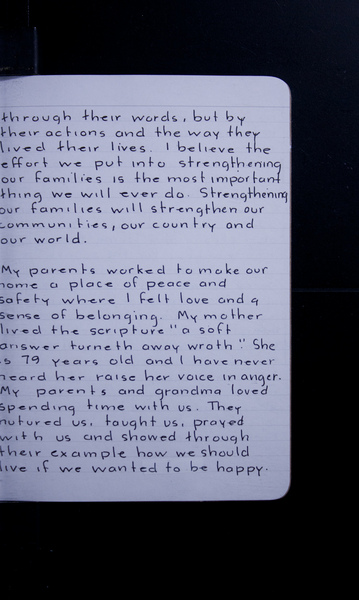 through their words, but by
their actions and the way they
lived their lives. I believe the
effort we put into strengthening
our families is the most important
thing we will ever do. Strengthening
our families will strengthen our
communities, our country and
our world.
My parents worked to make our
home a place of peace and
safety where I felt love and a
sense of belonging. My mother
lived the scripture "a soft
answer turneth away wroth". She
is 79 years old and I have never
heard her raise her voice in anger.
My parents and grandma loved
spending time with us. They
nutured us, taught us, prayed
with us and showed through
their example how we should
live if we wanted to be happy.